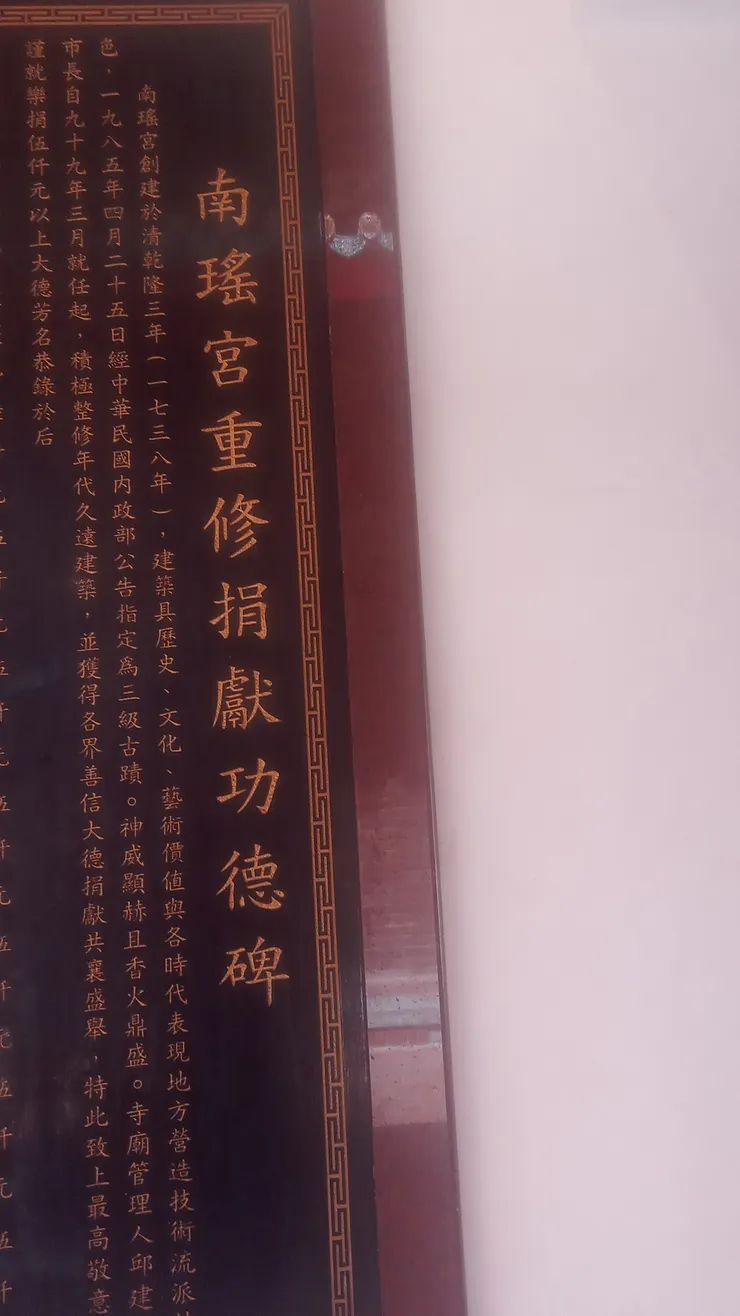 南瑤宮重修捐獻功德碑
南瑤宮創建於清乾隆三年（一七三八年），建築具歷史、文化、藝術價值與各時代表現地方營造技術流派
色，一九八五年四月二十五日經中華民國內政部公告指定為三級古蹟。神威顯赫且香火鼎盛。寺廟管理人邱建
市長自九十九年三月就任起，積極整修年代久遠建築，並獲得各界善信大德捐獻共襄盛舉，特此致上最高敬意
謹就樂捐伍仟元以上大德芳名恭錄於后
元伍仟元伍仟元伍仟元伍仟元伍仟元伍仟